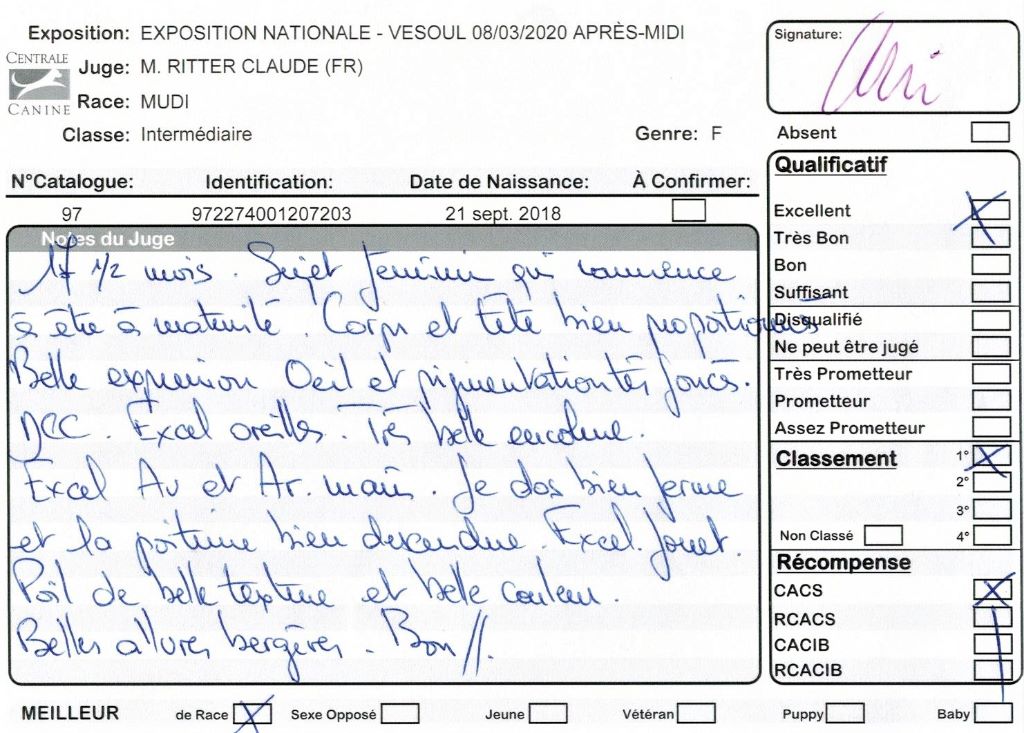 Exposition: EXPOSITION NATIONALE - VESOUL 08/03/2020 APRÈS-MIDI
CENTRALE CANINE
Juge: M. RITTER CLAUDE (FR)
Race: MUDI
Classe: Intermédiaire Genre: F
Signature:
Absent
N°Catalogue: Identification: Date de Naissance: À Confirmer:
97 972274001207203 21 sept. 2018
Notes du Juge
17 1/2 mois. Sujet feminin qui commence
à être à maturité. Corps et tête bien proportionnés
Belle expression Oeil et pigmentation très foncés.
DCC Excel oreilles Très belle encolure.
Excel Av et Ar. main le dos bien ferme
et la poitrine bien descendue. Excel fouet.
Poil de belle texture et belle couleur.
Belles allures bergères. Bon //.
Qualificatif
Excellent
Très Bon
Bon
Suffisant
Disqualifié
Ne peut être jugé
Très Prometteur
Prometteur
Assez Prometteur
Classement 1°
2°
3°
Non Classé 4°
Récompense
CACS
RCACS
CACIB
RCACIB
MEILLEUR de Race Sexe Opposé Jeune Vétéran Puppy Baby